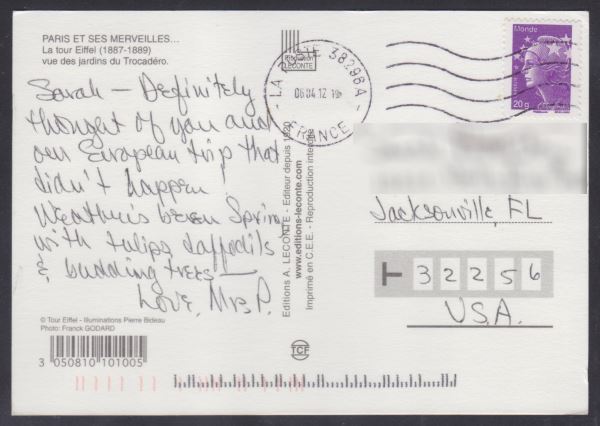 PARIS ET SES MERVEILLES...
La tour Eiffel (1887-1889)
vue des jardins du Trocadéro.
Sarah — Definitely
thought of you and
our European trip that
didn't happen
Weather's been Spring
with tulips daffodils
& budding trees —
Love, Mrs P.
© Tour Eiffel - Illuminations Pierre Bideau
Photo: Franck GODARD
3 050810 101005
Production
LECONTE
Editions A. LECONTE - Editeur depuis 1920
www.editions-leconte.com
Imprimé en C.E.E. - Reproduction interdite
TCF
LA POSTE 38298A
06.04.12
FRANCE
Monde
20g
Jacksonville, FL
32256
U.S.A.